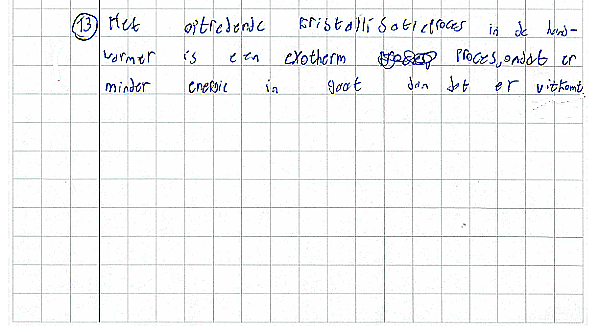 13 Het optredende kristallisatieproces in de hand-
warmer is een exotherm proces, omdat er
minder energie in gaat dan dat er uitkomt.